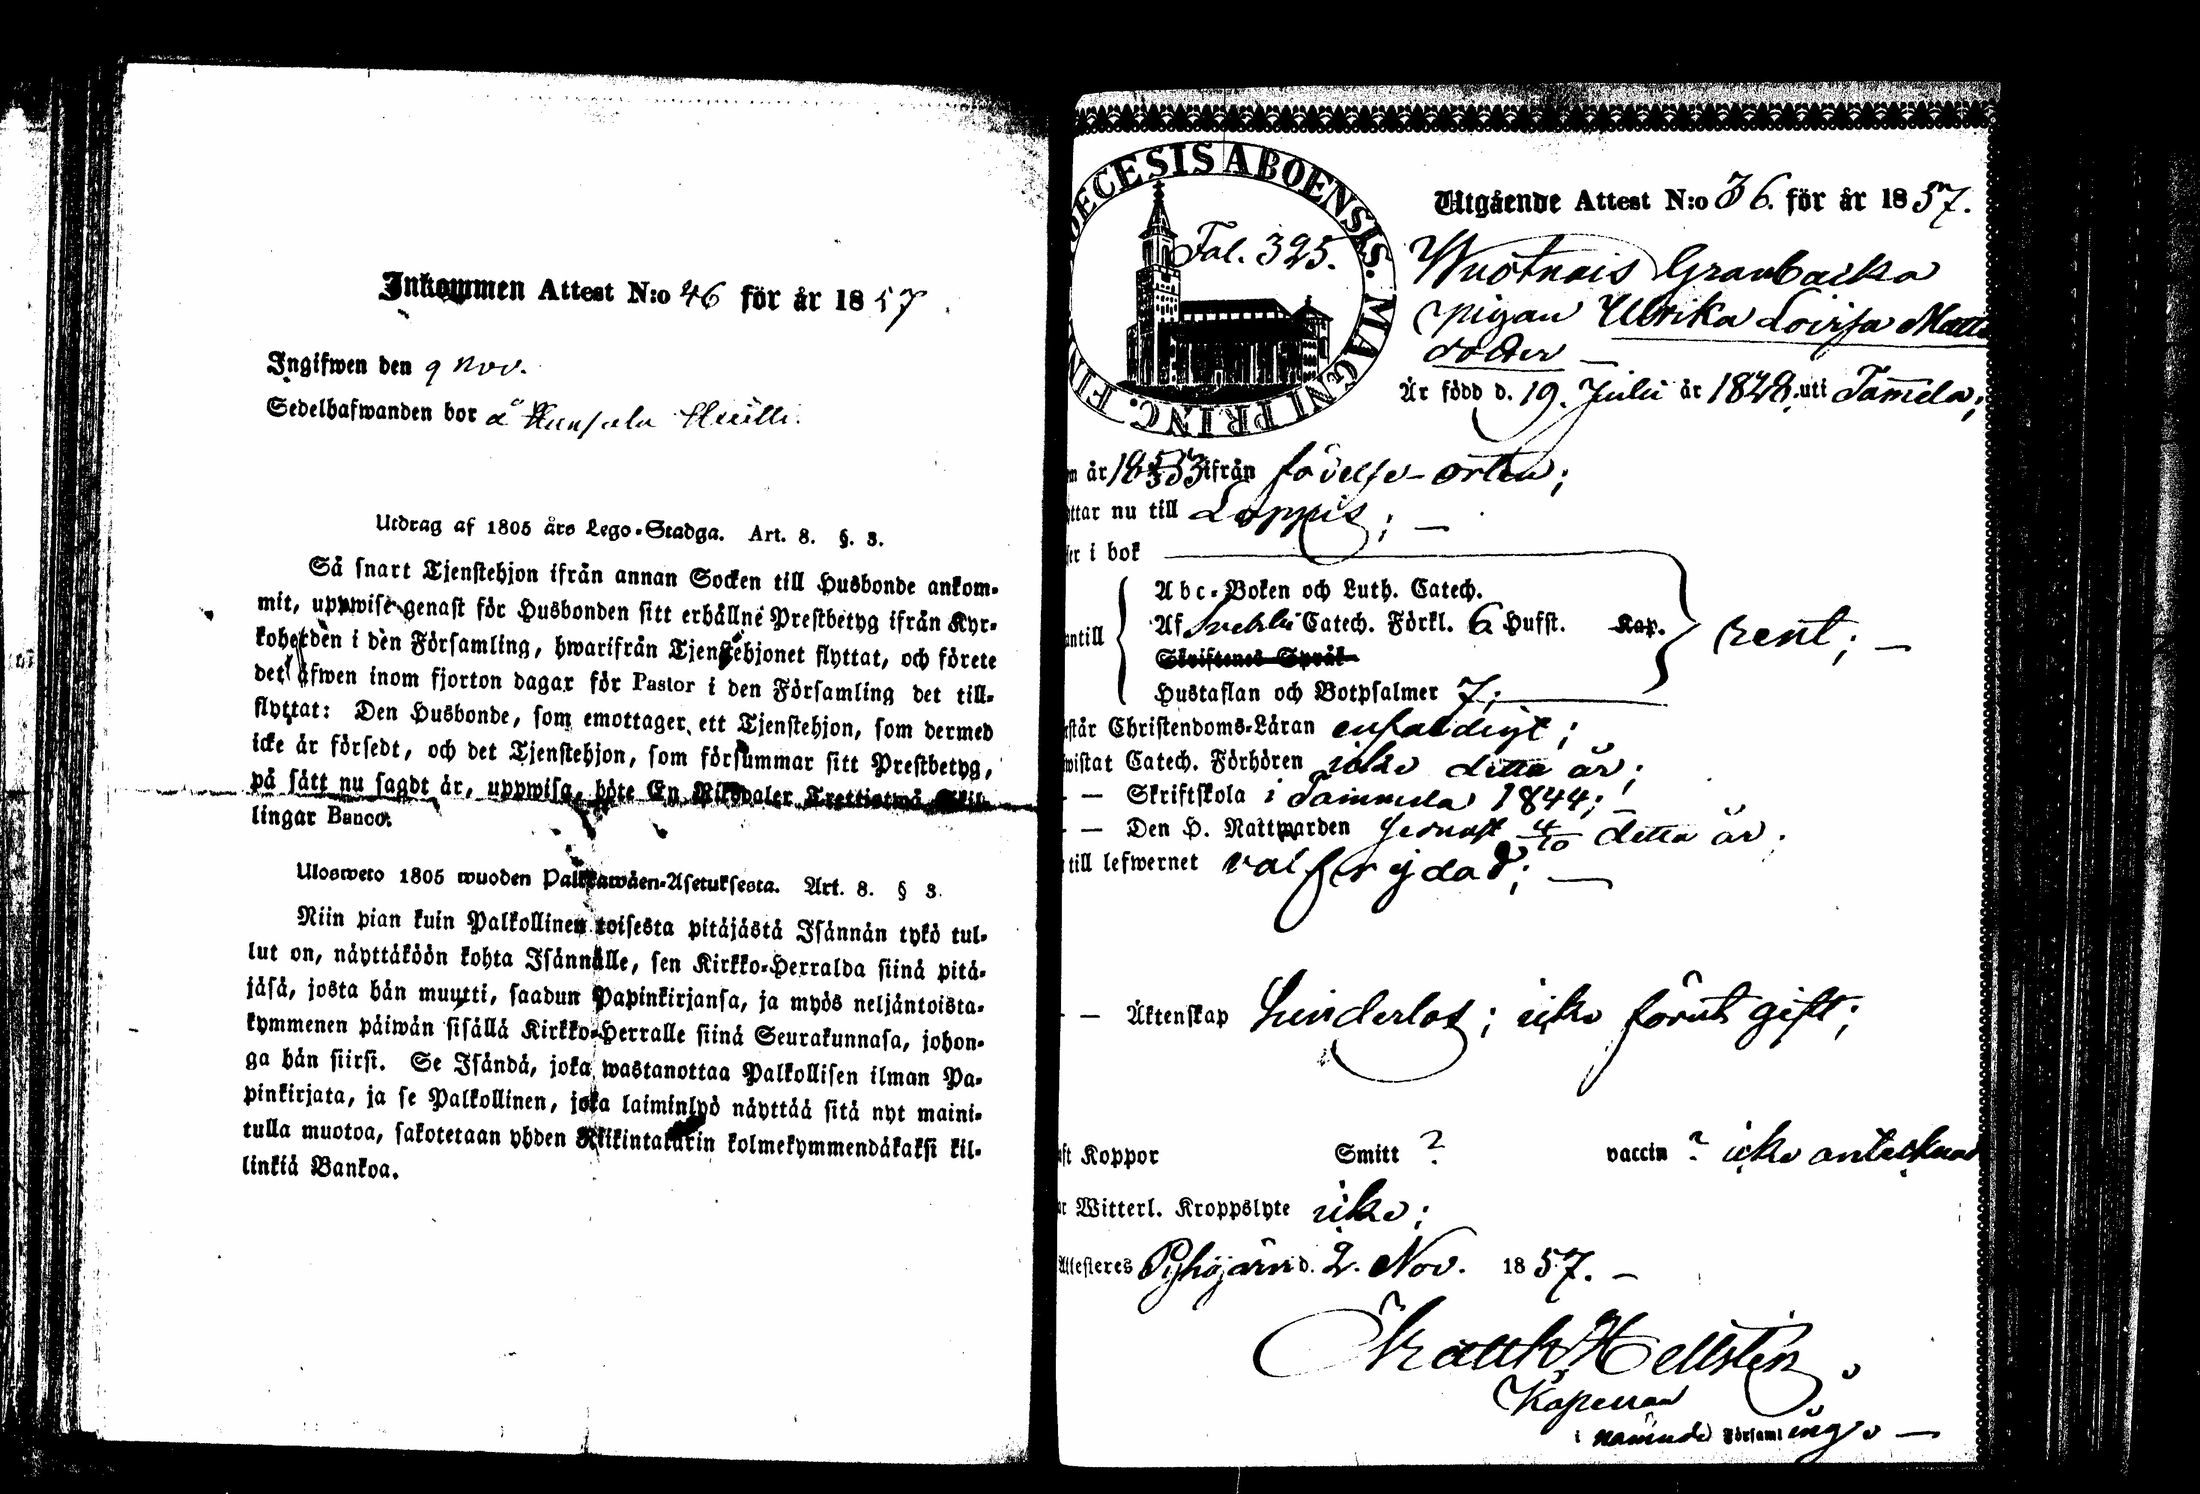 Inkommen Attest N:o 46 för år 1857
Ingifwen den 9 Nov.
Sedelhafwanden bor å
Utdrag af 1805 års Lego-Stadga. Art. 8. §. 3.
Så snart Tjenstehjon ifrån annan Socken till Husbonde ankom-
mit, uppwise genast för Husbonden sitt erhållne Prestbetyg ifrån Kyr-
koherden i den Församling, hwarifrån Tjenstehjonet flyttat, och förete
det äfwen inom fjorton dagar för Pastor i den Församling det till-
flyttat: Den Husbonde, som emottager ett Tjenstehjon, som dermed
icke är försedt, och det Tjenstehjon, som försummar sitt Prestbetyg,
på sätt nu sagdt är, uppwisa, böte En Riksdaler Trettiotwå Skil-
lingar Banco.
Ulosweto 1805 wuoden Palkkawäen-Asetuksesta. Art. 8. § 3.
Niin pian kuin Palkollinen toisesta pitäjästä Isännän tykö tul-
lut on, näyttäköön kohta Isännälle, sen Kirkko-Herralda siinä pitä-
jäsä, josta hän muutti, saadun Papinkirjansa, ja myös neljäntoista-
kymmenen päiwän sisällä Kirkko-Herralle siinä Seurakunnasa, johon-
ga hän siirsi. Se Isändä, joka wastanottaa Palkollisen ilman Pa-
pinkirjata, ja se Palkollinen, joka laiminlyö näyttää sitä nyt maini-
tulla muotoa, sakotetaan yhden Riikintalarin kolmekymmendäkaksi kil-
linkiä Bankoa.
DECESIS ABOENSIS. MAGNI PRINC. FIN
Fol. 325.
Utgående Attest N:o 36. för år 1857.
Wuotnais Granbacka
pigan Ulrika Lovisa Matts
dotter —
Är född d. 19. Juli år 1828. uti Tamela;
år 1853 ifrån födelse-orten;
ttar nu till Loppis; —
i bok
Abc-Boken och Luth. Catech.
Af Svebilii Catech. Förkl. 6 Hufst. Kap.
antill rent; —
Skriftenes Språk
Hustaflan och Botpsalmer 7;
står Christendoms-Läran enfaldigt;
wistat Catech. Förhören icke detta år;
— — Skriftskola i Tammela 1844; —
— — Den H. Nattwarden senast 4/10 detta år.
till lefwernet välfrejdad; —
— — Äktenskap hinderlös; icke förut gift;
ft Koppor Smitt ? vaccin ? icke antecknad
Witterl. Kroppslyte icke;
Attesteres Pyhäjärvi d. 2. Nov. 1857. —
Hellstén
Kapellan
i nämnde Församling. —